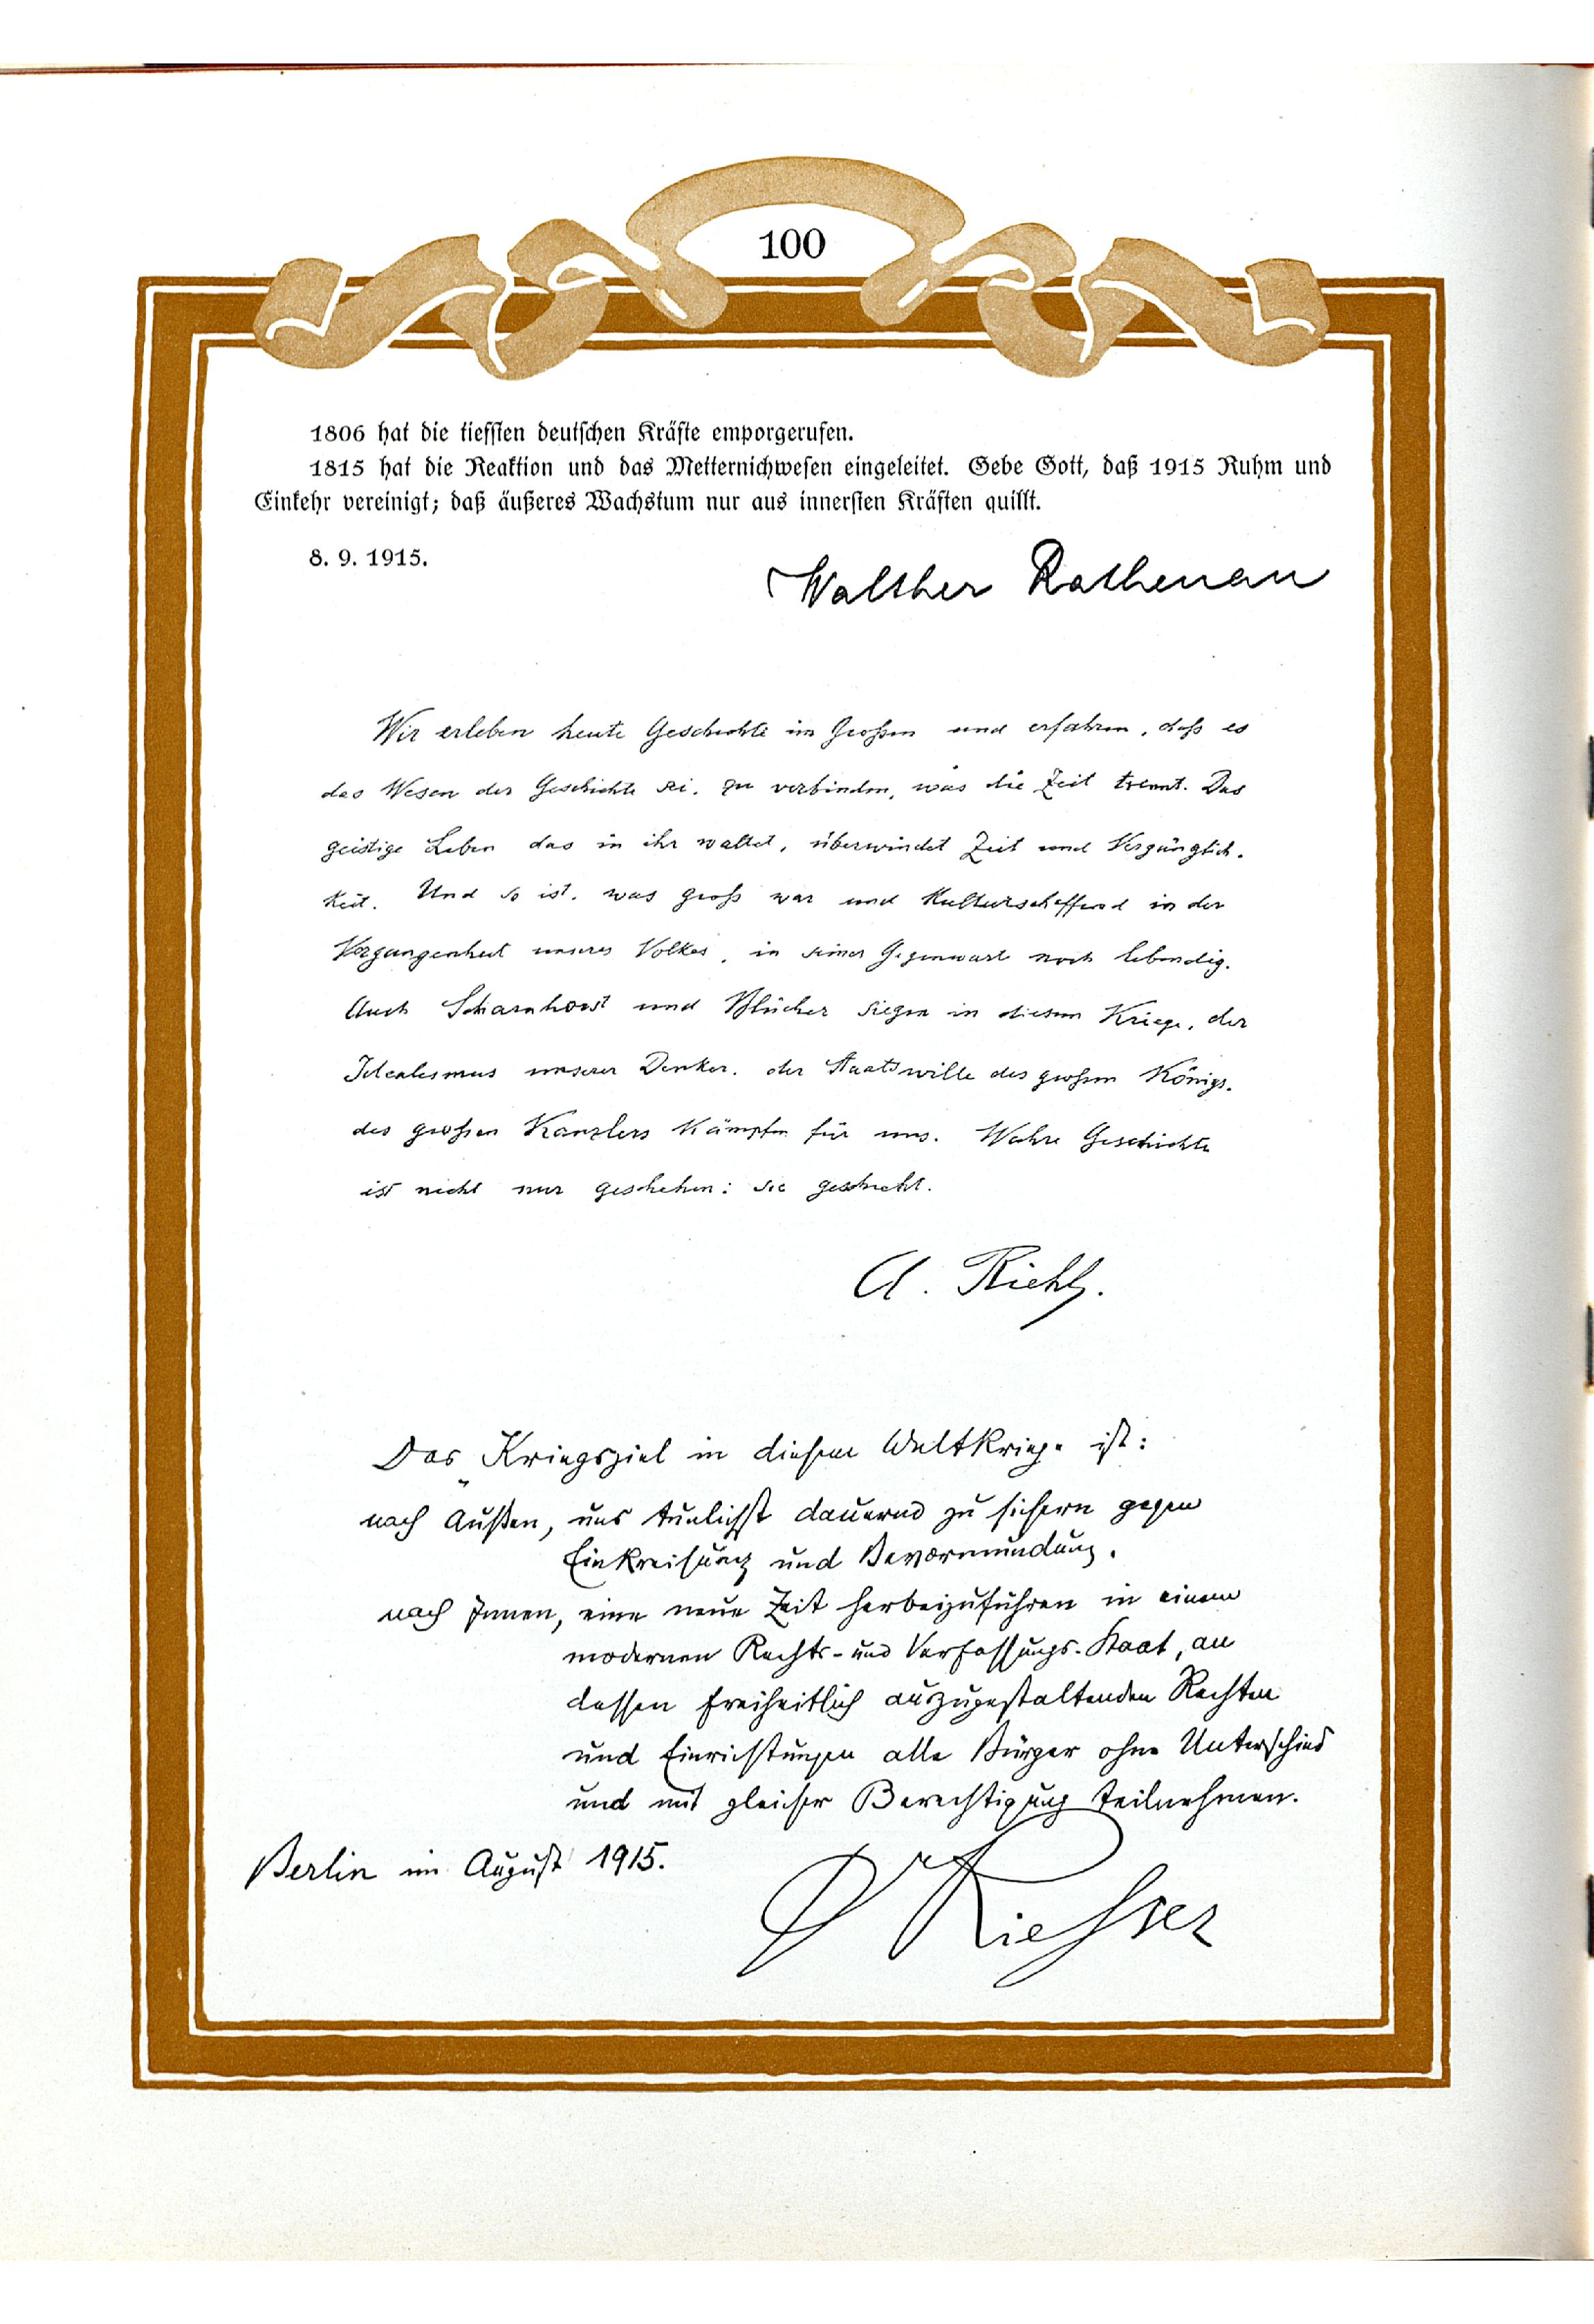 100
1806 hat die tiefsten deutschen Kräfte emporgerufen.
1815 hat die Reaktion und das Metternichwesen eingeleitet. Gebe Gott, daß 1915 Ruhm und
Einkehr vereinigt; daß äußeres Wachstum nur aus innersten Kräften quillt.
8. 9. 1915.
Walther Rathenau
Wir erleben heute Geschichte im Großen und erfahren, daß es
das Wesen der Geschichte sei, zu verbinden, was die Zeit trennt. Das
geistige Leben das in ihr waltet, überwindet Zeit und Vergänglich-
keit. Und so ist, was groß war und Kulturschaffend in der
Vergangenheit unseres Volkes, in seiner Gegenwart noch lebendig.
Auch Scharnhorst und Blücher siegen in diesem Kriege, der
Idealismus unserer Denker, der Staatswille des großen Königs,
des großen Kanzlers kämpfen für uns. Wahre Geschichte
ist nicht nur geschehen: sie geschieht.
A. Riehl.
Das Kriegsziel in diesem Weltkriege ist:
nach Außen, uns tunlichst dauernd zu sichern gegen
Einkreisung und Bevormundung.
nach Innen, eine neue Zeit herbeizuführen in einem
modernen Rechts- und Verfassungs-Staat, an
dessen freiheitlich auszugestaltenden Rechten
und Einrichtungen alle Bürger ohne Unterschied
und mit gleicher Berechtigung teilnehmen.
Berlin im August 1915.
Riesser